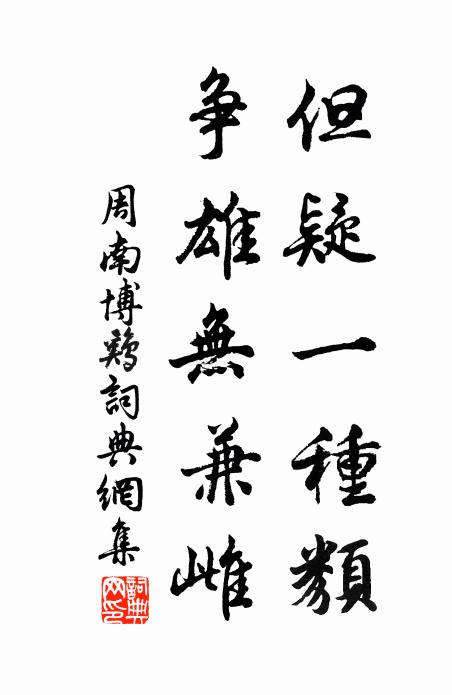 但疑一種類
争雄無兼雌
周南博鷄詞典網集
詞典網印